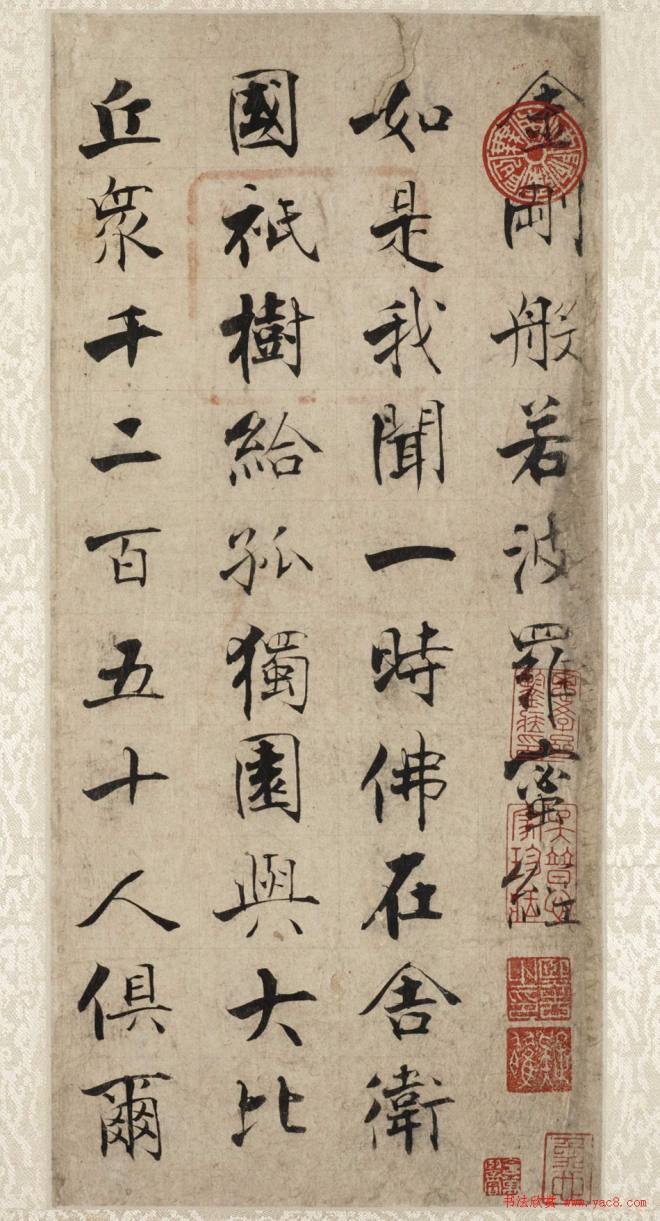 金剛般若波羅蜜經
如是我聞一時佛在舍衛
國祇樹給孤獨園與大比
丘衆千二百五十人俱爾
书法欣赏 www.yac8.com